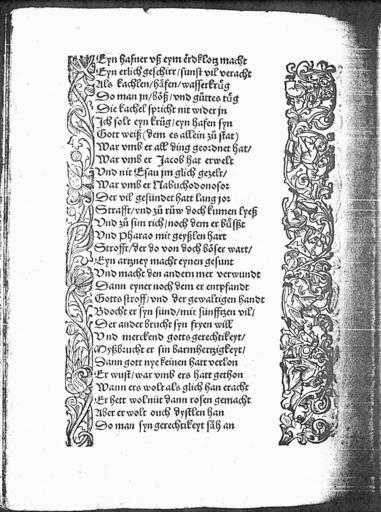 Eyn hafner vß eym erdklotz macht
Eyn erlich geschirr/sunst vil veracht
Als kachlen/häfen/wasserkrüg
Do man jn/böß/vnd güttes tüg
Die kachel spricht nit wider jn
Ich solt eyn krüg/eyn hafen syn
Gott weißt (dem es allein zů stat)
War vmb er all ding geordnet hat/
War vmb er Jacob hat erwelt
Vnd nit Esau jm glich gezelt/
War vmb er Nabuchodonosor
Der vil gesündet hatt lang jor
Strafft/vnd zů rüw doch kumen lyeß
Vnd zů sim rich/noch dem er büßßt
Vnd Pharao mit geyßlen hart
Strofft/der do von doch böser wart/
Eyn artzney macht eynen gesunt
Vnd macht den andern mer verwundt
Dann eyner noch dem er entpfandt
Gotts stroff/vnd der gewaltigen handt
Bdocht er syn sünd/mit sünfftzen vil/
Der ander brucht syn fryen will
Vnd merckend gotts gerechtikeyt/
Myßbrucht er sin barmhertzigkeyt/
Dann gott nye keinen hatt verlon
Er wußt/war vmb ers hatt gethon
Wann ers wolt als glich han eracht
Er hett wol nüt dann rosen gemacht
Aber er wolt ouch dystlen han
Do man syn gerechtikeyt säh an